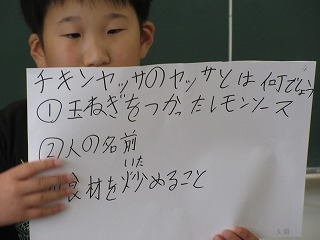 チキンヤッサのヤッサとは何でしょう
①玉ねぎをつかったレモンソース
②人の名前
いた
食材を炒めること